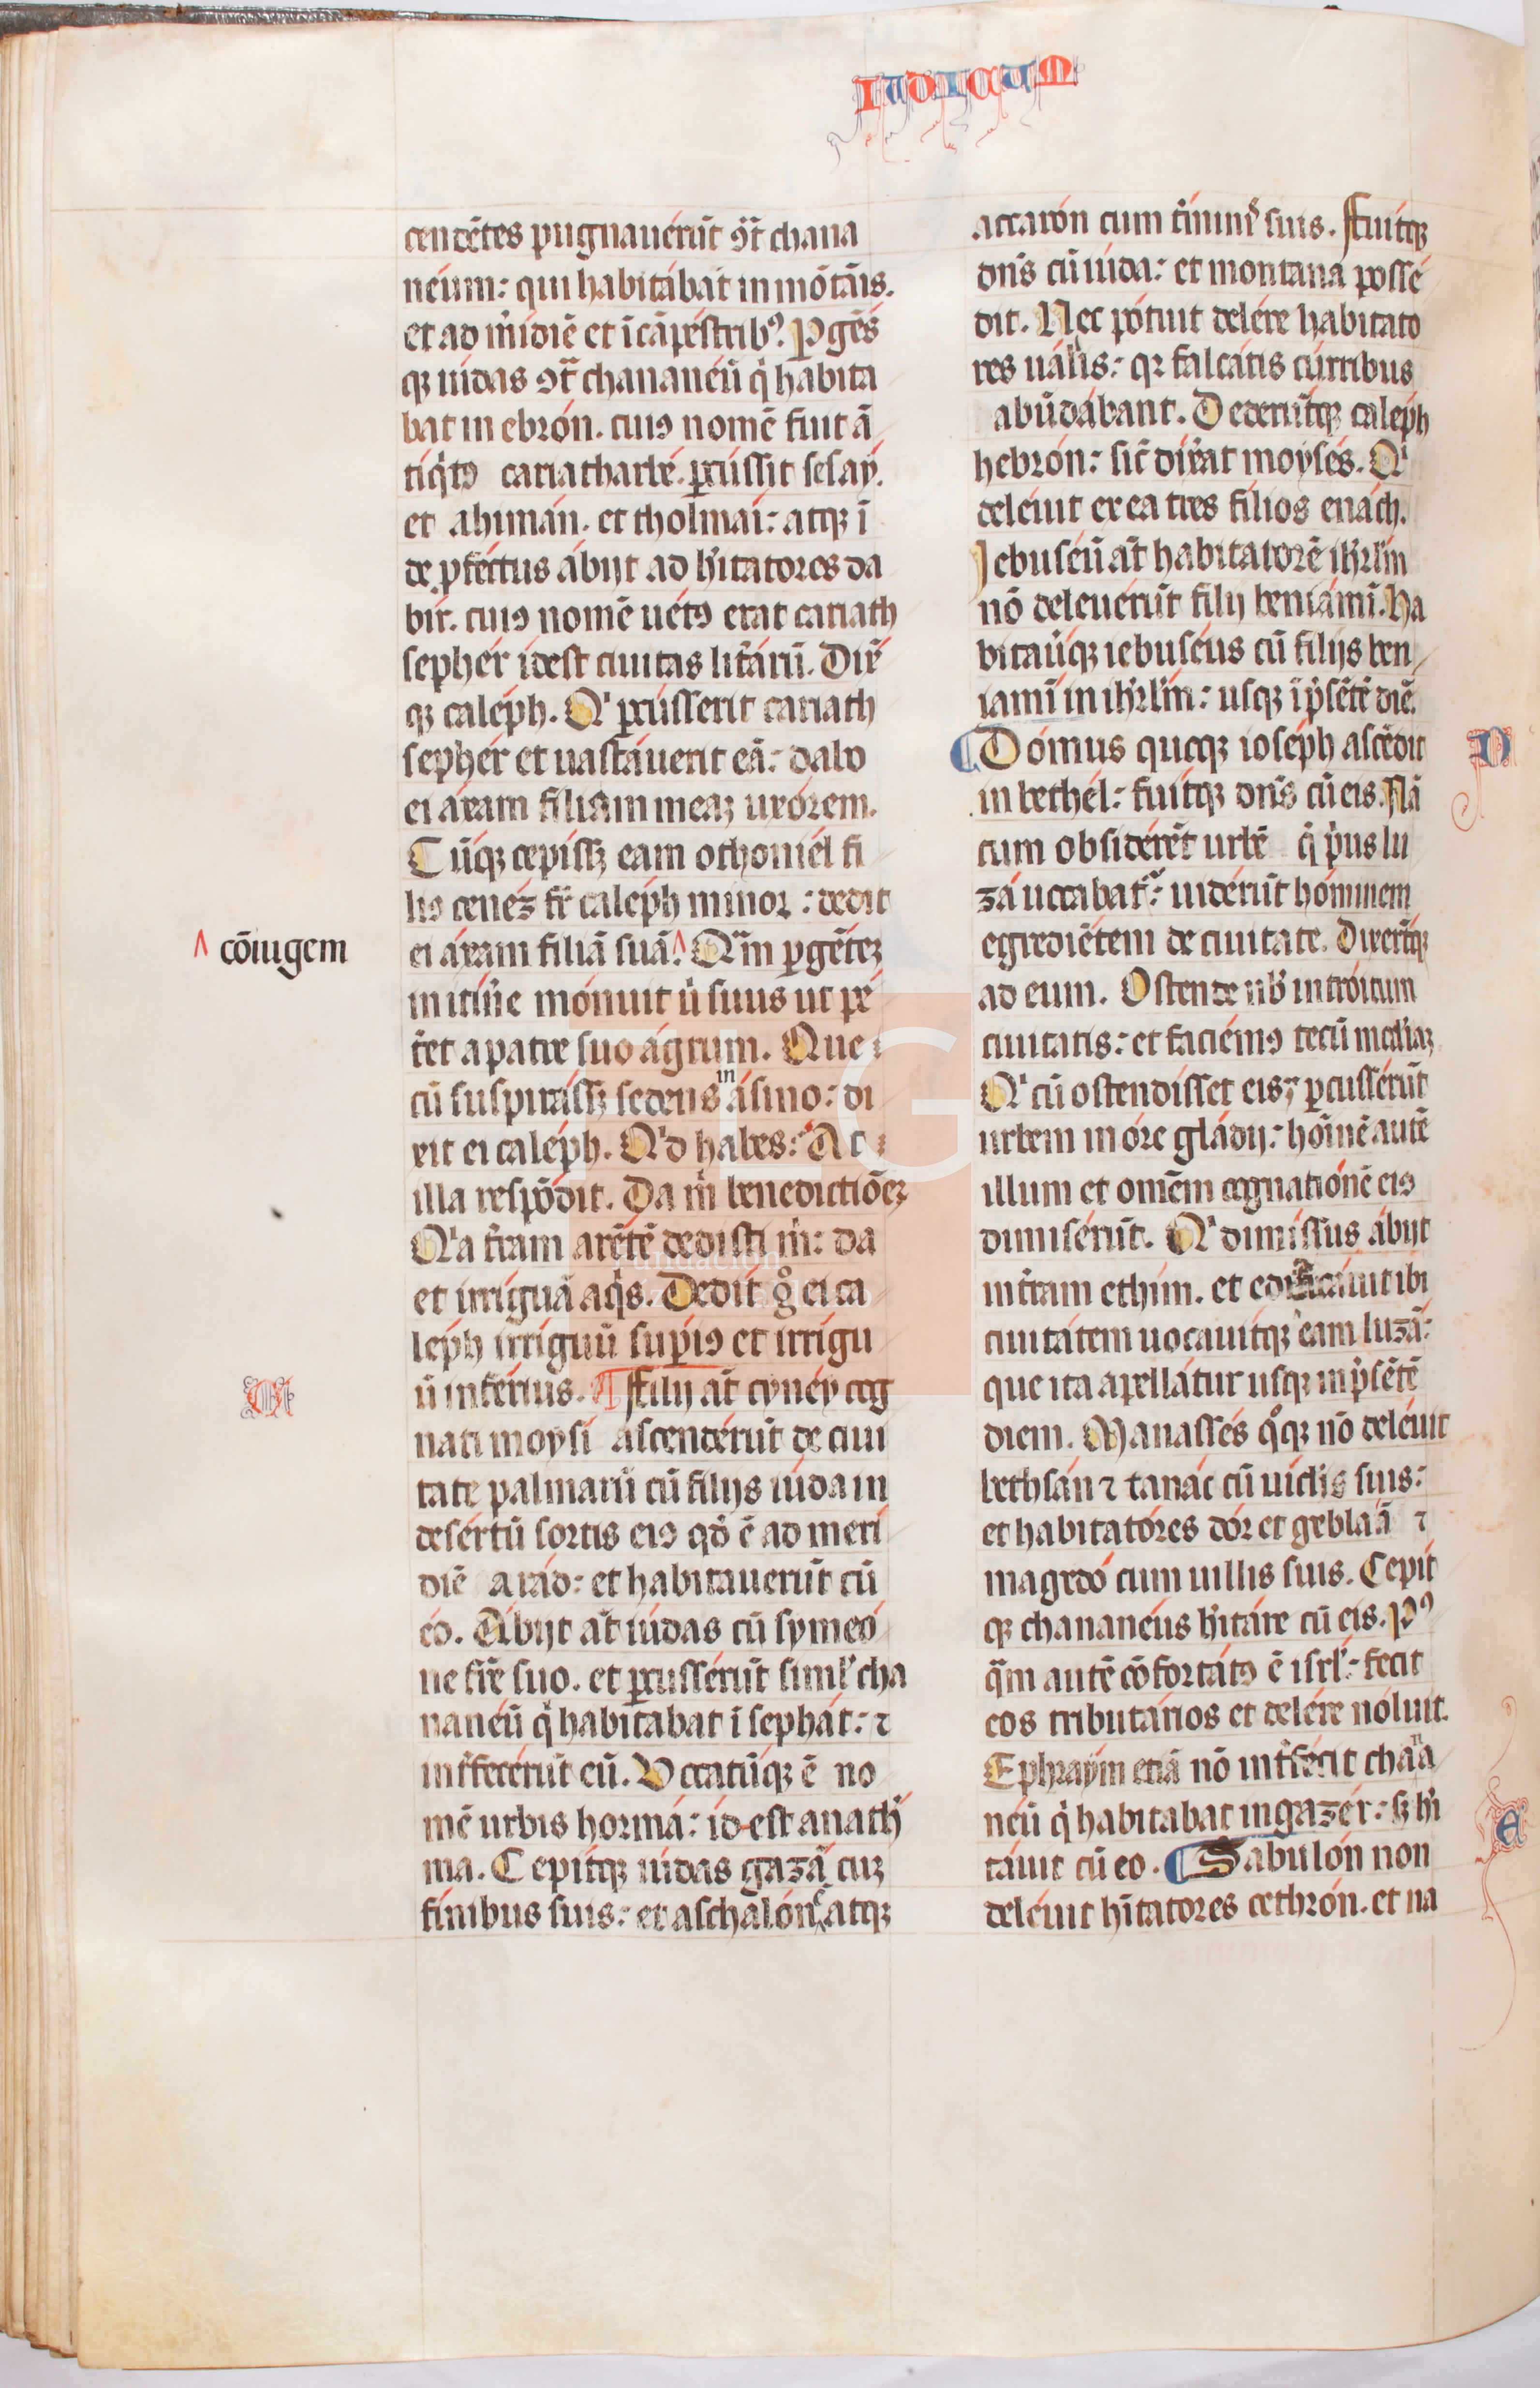 IUDICUM
cendētes pugnauerūt ꝯt̄ chana
néum: qui habitábat in mōtāis.
et ad m̄idiē et ī cāpéstribꝰ. Pgēs
qꝫ iudas ꝯt̄ chananeū q̇ habita
bat in ebrón. cuiꝯ nomē fuit ā
tiq̇tꝯ cariatharbé. ꝑcússit sesay.
et ahimán. et tholmai: atqꝫ ī
de ꝓféctus ábijt ad h̄itatores da
bir. cuiꝯ nomē uétꝯ erat cariath
sepher idest ciuitas litt̄arū. Dix̄
qꝫ caléph. Qⁱ ꝑcússerit cariath
sephér et uastáuerit eā: dabo
ei áxam filiam meaꝫ uxórem.
Cūqꝫ cepíssꝫ eam othoniél fi
liꝯ cenéz fr̄ caléph minor: dedit
ei áxam filiā suā. Q̄m ꝑgētēꝫ
^ cōiugem
in itiñe mónuit ů suus ut pe
t̄et a patre suo ágrum. Que
cū suspirássꝫ sedens in ásino: di
xit ei caléph. Qⁱd habes: At
illa respōdit. Da m̄ benedictiōēꝫ
Qⁱa t̄ram arētē dedisti m̄: da
et irríguā aq̇s. Dedit g̊ ei ca
léph irriguū supiꝯ et irrigu
ū inférius. ¶ Filij at̄ cynéy cog
nati moysi ascendérūt de ciui
tate palmarū cū filijs iúda in
desértū sortis eiꝯ qd̄ ē ad meri
diē arád: et habitauerūt cū
eó. Abijt at̄ iúdas cū symeó
ne fr̄e suo. et ꝑcussérūt simł cha
naneū q̇ habitabat ī sephát: ⁊
int̄fecérūt eū. Uocatūqꝫ ē no
mē urbis hormá: id est anath̄
ma. Cepitqꝫ iúdas gazā cuꝫ
finibus suis: et aschalónē atqꝫ
accarón cum t̄minis suis. Fuitqꝫ
dn̄s cū iuda: et montana possé
dit. Nec pótuit delére habitato
res uallis: qꝛ falcátis cúrribus
abūdábant. Dederūtqꝫ caleph
hebrón: sic̄ dix̄at moysés. Qⁱ
deléuit ex ea tres filios enách.
Iebuseū at̄ habitatorē ih̄rlm
nō deleuérūt filij beniámī. Ha
bitaūqꝫ iebuséus cū filijs ben
iamī in ih̄rlm: usqꝫ ī p̄sētē diē.
Domus quoqꝫ ioséph ascēdit
in bethél: fuitqꝫ dn̄s cū eis. Nā
cum obsiderēt urbē q̄ ṗus lu
zá uocabatʳ: uidérūt hóminem
egrediētem de ciuitate. Dixerūtqꝫ
ad eum. Ostende nob̄ introitum
ciuitatis: et faciémꝯ tecū mīdiaꝫ
Qⁱ cū ostendisset eis: ꝑcussérūt
urbem in ore gládij: hoīnē autē
illum et omēm cognatiónē eiꝯ
dimisérūt. Qⁱ dimíssus ábijt
in t̄ram ethim. et edificáuit ibi
ciuitátem uocauitqꝫ eam luzā:
que ita apellátur usqꝫ in p̄sētē
diem. Manassés qꝫ nō deléuit
bethsán ⁊ tanác cū uiclis suis:
et habitatóres dór et geblaā ⁊
magedó cum uillis suis. Cepit
qꝫ chananéus h̄itáre cū eis. Pꝰ
q̄m autē cōfortátꝯ ē isrl̄: fecit
eos tributários et delére nóluit.
Ephraym etiā nō int̄fécit chana
néū q̇ habitabat in gazér: sꝫ h̄i
táuit cū eo. Zabulón non
deléuit h̄itatores cethrón. et na